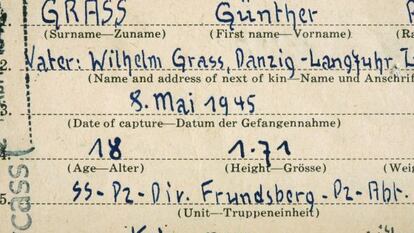 GRASS Günther
(Surname—Zuname) (First name—Vorname) (Ra
2. Vater: Wilhelm Grass, Danzig-Langfuhr, L
(Name and address of next of kin—Name und Anschri
8. Mai 1945
(Date of capture—Datum der Gefangennahme)
18 1.71
(Age—Alter) (Height—Grösse) (Wei
5. SS-Pz-Div. Frundsberg-Pz-Abt.
(Unit—Truppeneinheit)